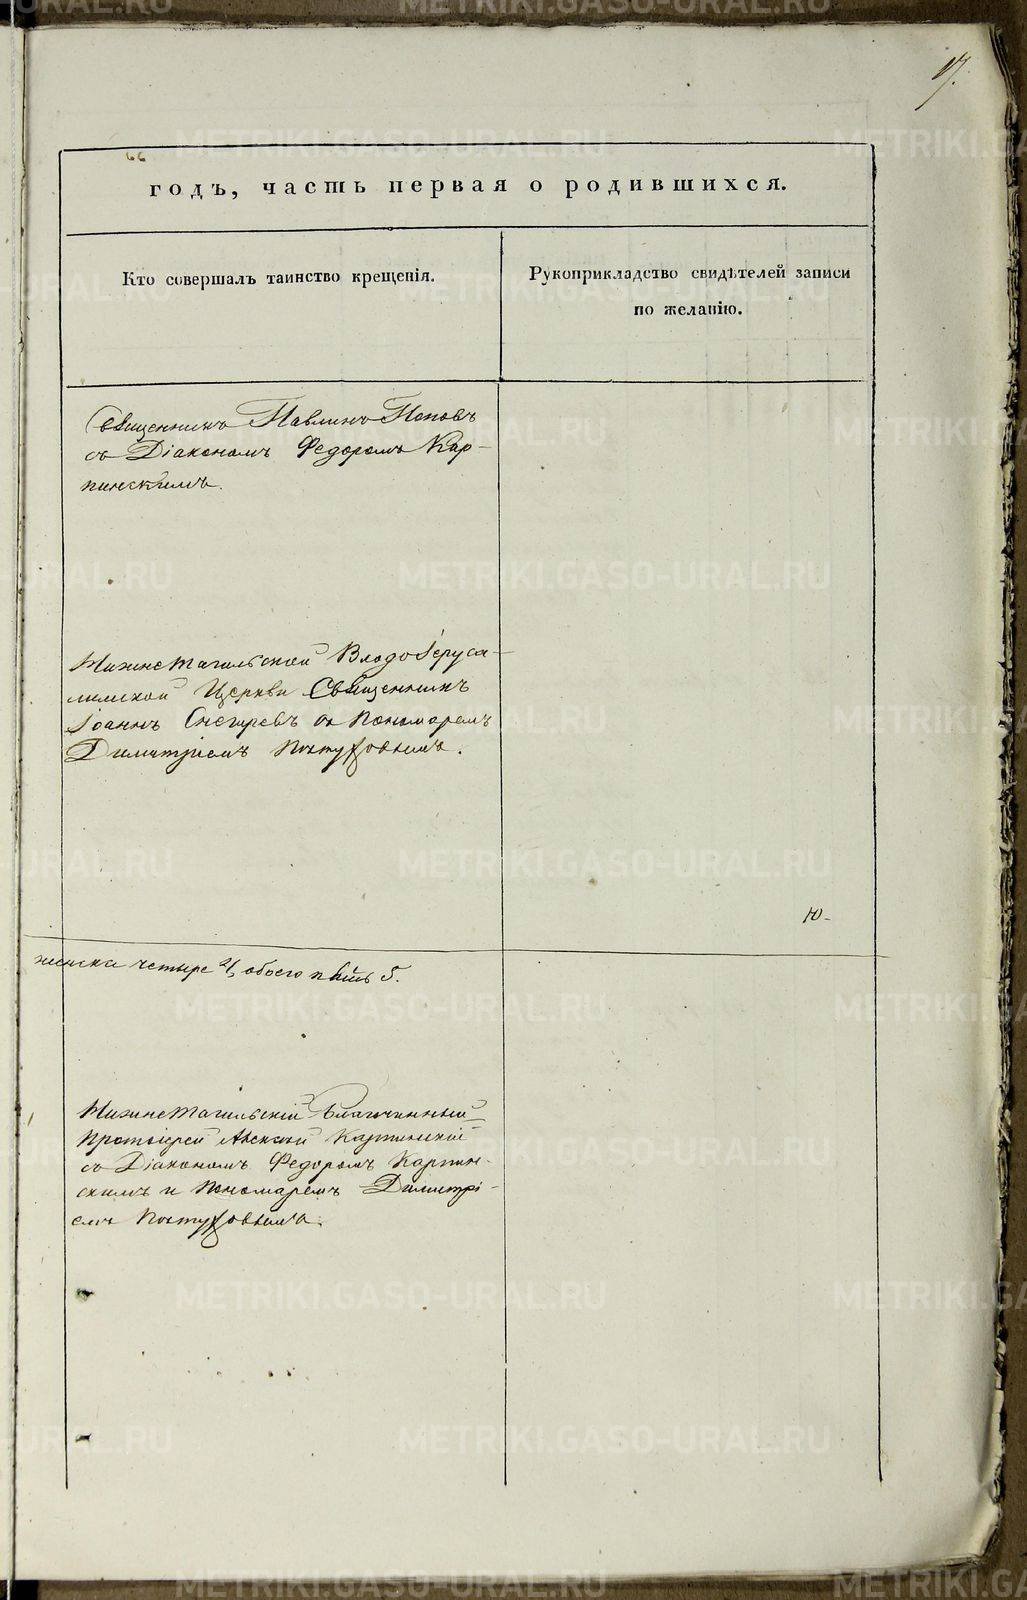 17.
годъ, часть первая о родившихся.
Кто совершалъ таинство крещенія.
Рукоприкладство свидѣтелей записи
по желанію.
Священникъ Павлинъ Поповъ
съ Діакономъ Федоромъ Кар-
пинскимъ.
Нижнетагильской Входоіеруса-
лимской Церкви Священникъ
Іоаннъ Снегиревъ съ Пономаремъ
Димитріемъ
Ю-
женска четыре 4, обоего пять 5.
Нижнетагильскій Благочинный
Протоіерей Карпинскій
съ Діакономъ Федоромъ Карпин-
скимъ и Пономаремъ Димитрі-
емъ
METRIKI.GASO-URAL.RU